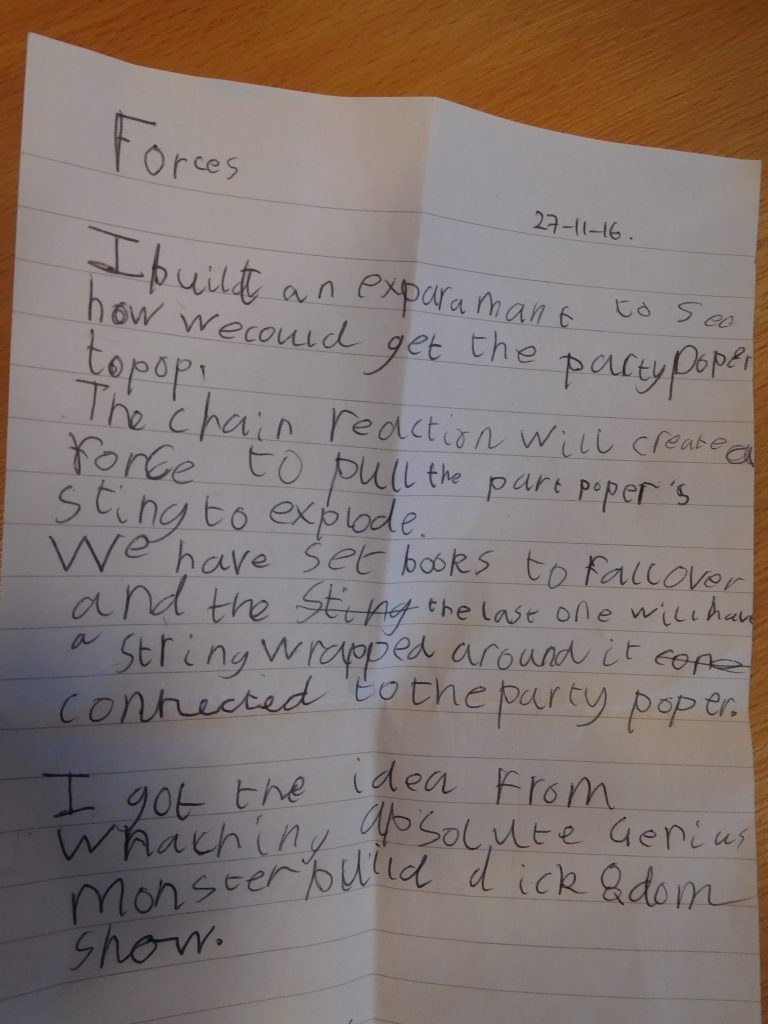 Forces
27-11-16.
I built an exparamant to see
how we could get the party poper
to pop.
The chain reaction will create a
force to pull the part poper's
sting to explode.
We have set books to fall over
and the sting the last one will have
a string wrapped around it cone
connected to the party poper.
I got the idea from
whatching absolute Genius
monster build dick & dom
show.